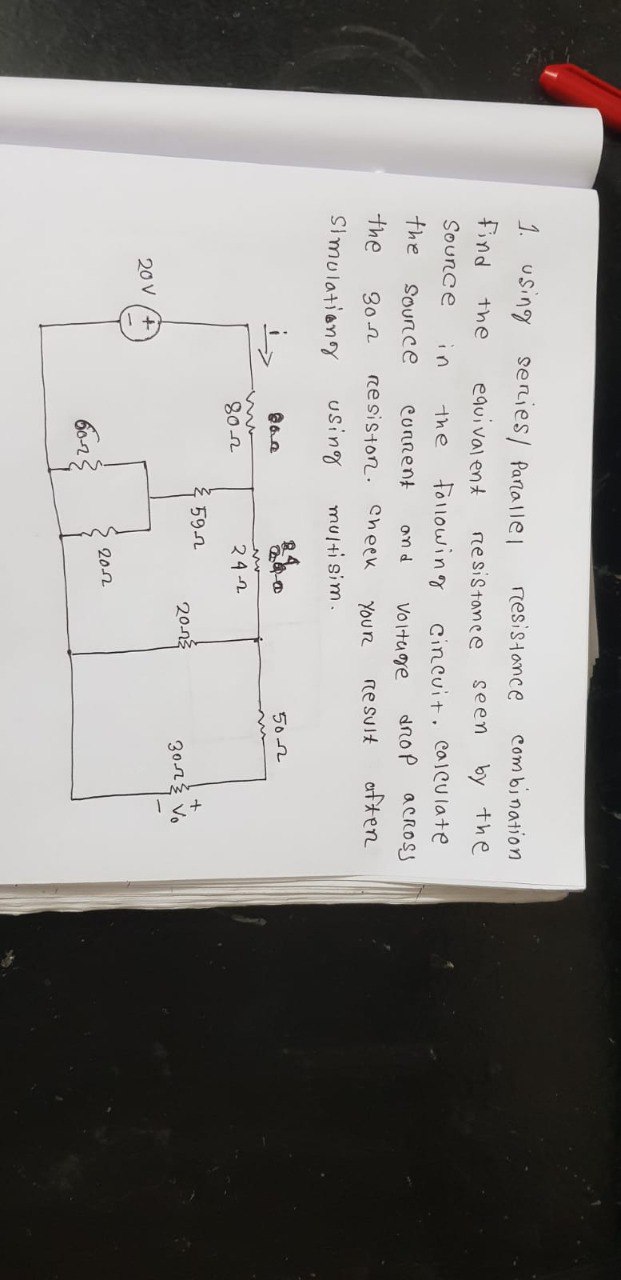 1. using series/parallel resistance combination
find the equivalent resistance seen by the
source in the following circuit. calculate
the source current and voltage drop across
the 30Ω resistor. check your result after
simulationg using multisim.
i
80Ω
24Ω
50Ω
20V
+
-
59Ω
20Ω
30Ω
+
V₀
-
60Ω
20Ω